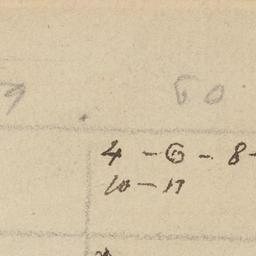 60
4 - 6 - 8 -
10 - 17